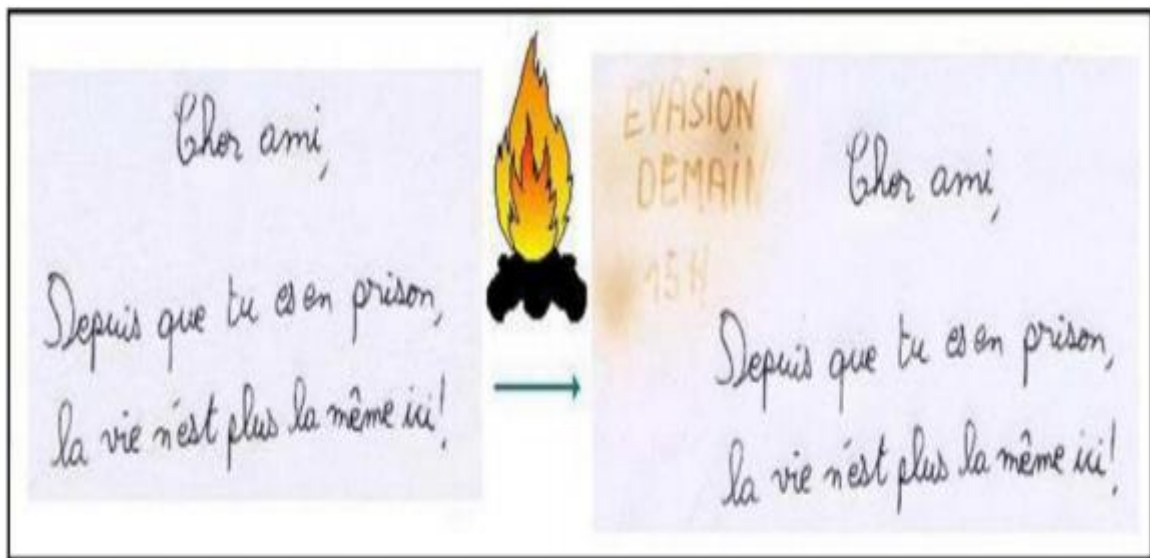 Cher ami,
Depuis que tu es en prison,
la vie n'est plus la même ici!
EVASION
DEMAIN
15H
Cher ami,
Depuis que tu es en prison,
la vie n'est plus la même ici!